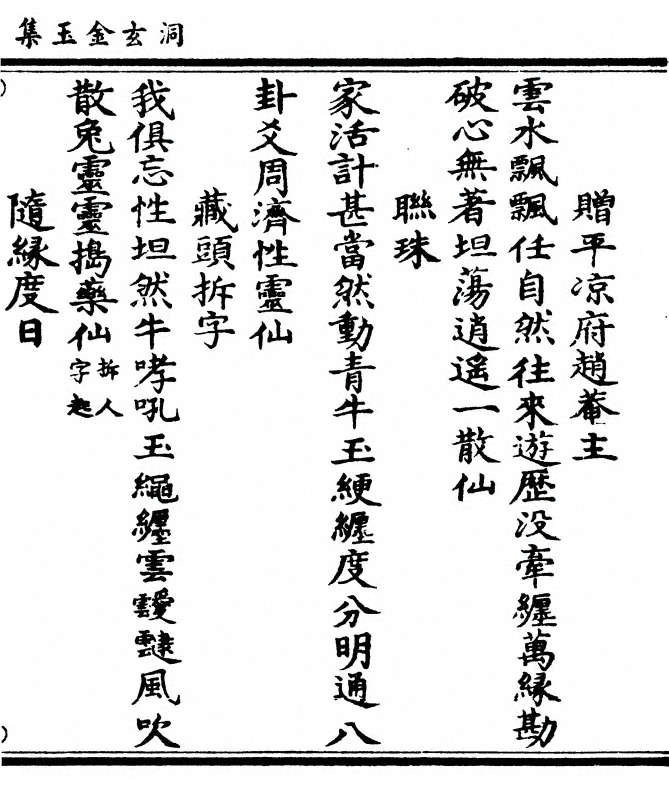 洞玄金玉集
贈平凉府趙菴主
雲水飄飄任自然往來遊歷没牽纏萬緣勘
破心無著坦蕩逍遥一散仙
聯珠
家活計甚當然動青牛玉綆纏度分明通八
卦爻周濟性靈仙
藏頭拆字
我俱忘性坦然牛哮吼玉繩纏雲靉靆風吹
散兔靈靈搗藥仙拆人
字起
隨緣度日